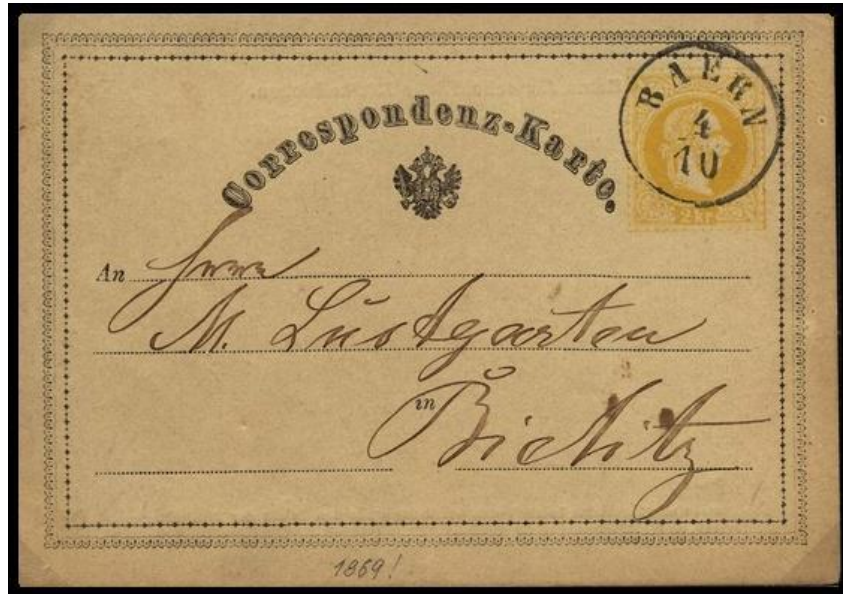 Correspondenz-Karte.
BAERN
4
10
2 kr.
An Herrn
M. Lustgarten
in Bielitz
1869!